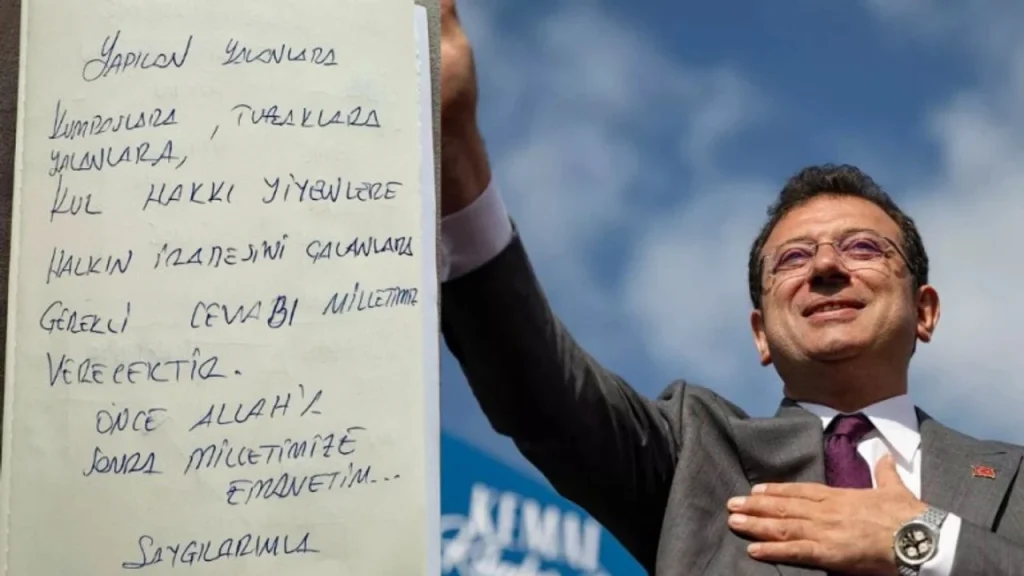 YAPILAN YALANLARA
KUMPASLARA, TUZAKLARA
YALANLARA,
KUL HAKKI YİYENLERE
HALKIN İRADESİNİ ÇALANLARA
GEREKLİ CEVABI MİLLETİMİZ
VERECEKTİR.
ÖNCE ALLAH'A
SONRA MİLLETİMİZE
EMANETİM...
SAYGILARIMLA
KEMAL